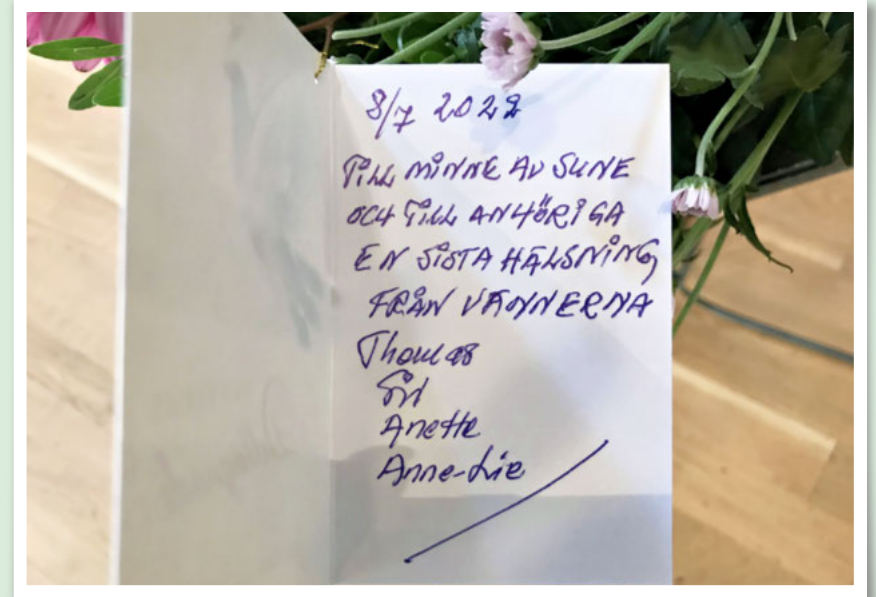 8/7 2022
TILL MINNE AV SUNE
OCH TILL ANHÖRIGA
EN SISTA HÄLSNING
FRÅN VÄNNERNA
Thomas
Siri
Anette
Anne-Lie